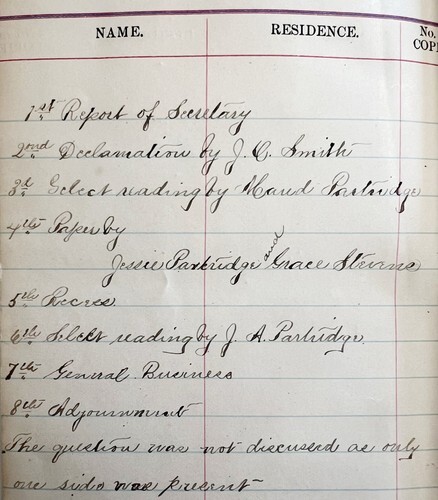 NAME. RESIDENCE. No. COPI
1st Report of Secretary
2nd Declamation by J. C. Smith
3d Select reading by Maud Partridge
4th Paper by
Jessie Partridge and Grace Stevens
5th Recess
6th Select reading by J. A. Partridge
7th General Business
8th Adjournment
The question was not discussed as only
one side was present